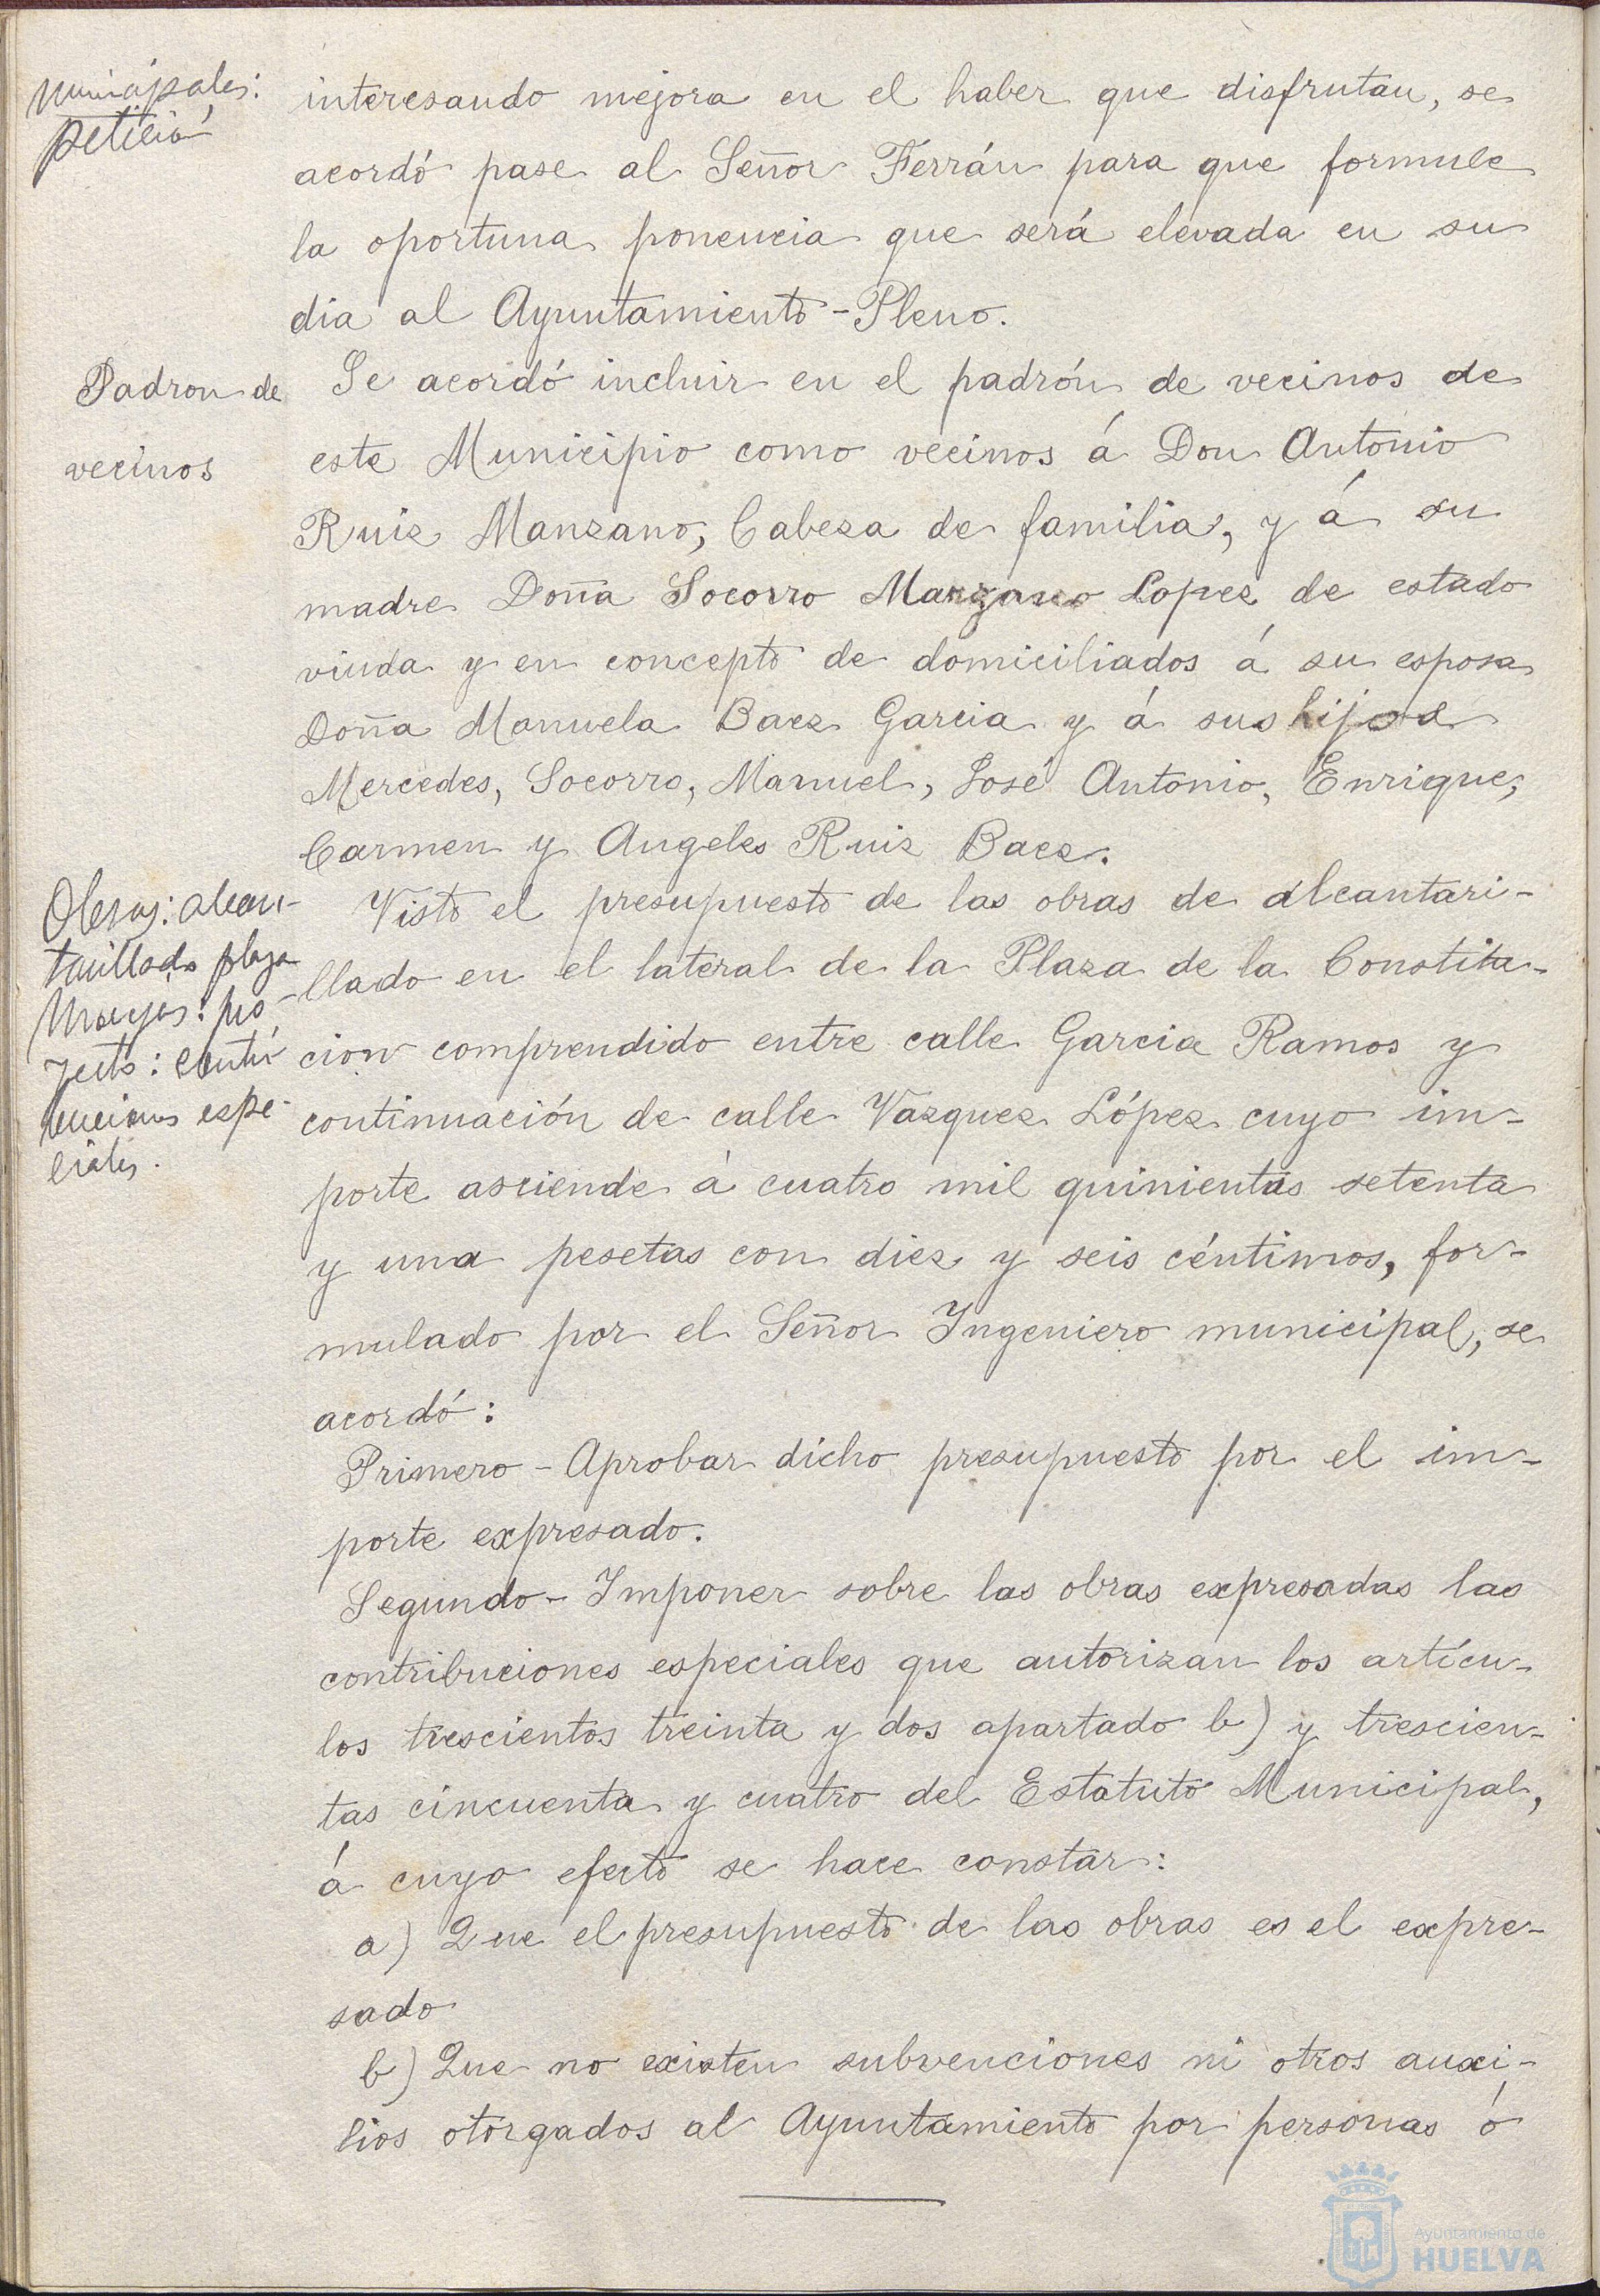 municipales:
petición
interesando mejora en el haber que disfrutan, se
acordó pase al Señor Ferrán para que formule
la oportuna ponencia que será elevada en su
dia al Ayuntamiento-Pleno.
Padron de
vecinos
Se acordó incluir en el padrón de vecinos de
este Municipio como vecinos á Don Antonio
Ruiz Manzano, Cabeza de familia, y á su
madre Doña Socorro Manzano Lopez de estado
viuda y en concepto de domiciliados á su esposa
Doña Manuela Baez Garcia y á sus hijos
Mercedes, Socorro, Manuel, José Antonio, Enrique,
Carmen y Angeles Ruiz Baez.
Obras: alcan-
tarillado plaza
Monjas: pro-
yecto: contri
buciones espe-
ciales.
Visto el presupuesto de las obras de alcantari-
llado en el lateral de la Plaza de la Constitu-
cion comprendido entre calle Garcia Ramos y
continuación de calle Vazquez López cuyo im-
porte asciende á cuatro mil quinientas setenta
y una pesetas con diez y seis céntimos, for-
mulado por el Señor Ingeniero municipal, se
acordó:
Primero - Aprobar dicho presupuesto por el im-
porte expresado.
Segundo - Imponer sobre las obras expresadas las
contribuciones especiales que autorizan los artícu-
los trescientos treinta y dos apartado b) y trescien-
tas cincuenta y cuatro del Estatuto Municipal,
á cuyo efecto se hace constar:
a) Que el presupuesto de las obras es el expre-
sado
b) Que no existen subvenciones ni otros auxi-
lios otorgados al Ayuntamiento por personas ó
Ayuntamiento de
HUELVA